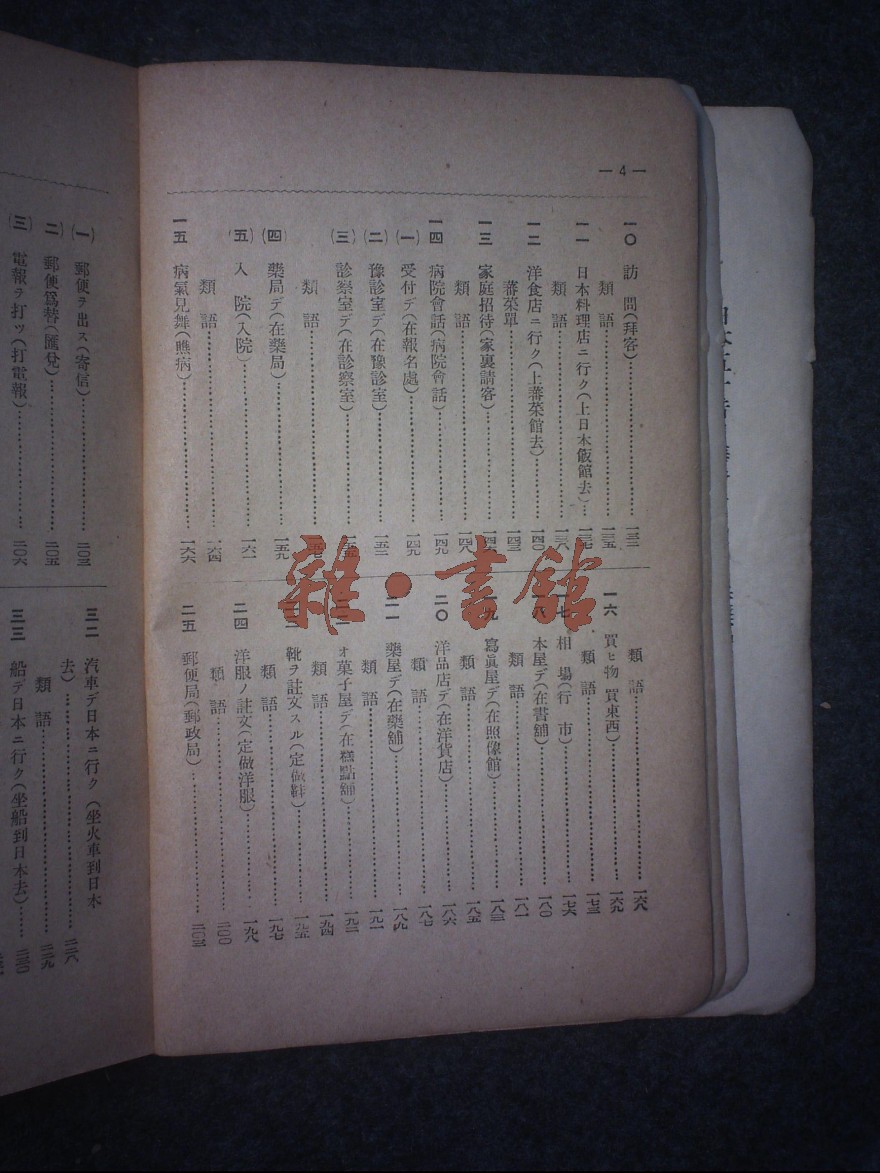 — 4 —
一〇 訪 問(拜客)………一三二
類 語………一三五
一一 日本料理店ニ行ク(上日本飯館去)…一三七
類 語………一三八
一二 洋食店ニ行ク(上蕃菜館去)………一四〇
蕃菜單………一四三
一三 家庭招待(家裏請客)………一四六
類 語………一四八
一四 病院會話(病院會話)………一四九
(一) 受付デ(在報名處)………一四九
(二) 豫診室デ(在豫診室)………一五二
(三) 診察室デ(在診察室)………一五
類 語………
(四) 藥局デ(在藥局)………一五九
(五) 入 院(入院)………一六一
類 語………一六四
一五 病氣見舞(瞧病)………一六六
類 語………一六八
一六 買ヒ物 買東西)………一六九
類 語………一七三
一七 相 場(行 市)………一七六
一八 本屋デ(在書舖)………一八〇
類 語………一八一
一九 寫眞屋デ(在照像館)………一八三
類 語………一八五
二〇 洋品店デ(在洋貨店)………一八六
類 語………一八七
二一 藥屋デ(在藥舖)………一八九
類 語………一九一
オ菓子屋デ(在糕點舖)………一九二
類 語………一九四
靴ヲ註文スル(定做鞋)………一九五
類 語………一九七
二四 洋服ノ註文(定做洋服)………一九八
類 語………二〇〇
二五 郵便局(郵政局)………二〇三
(一) 郵便ヲ出ス(寄信)………二〇三
(二) 郵便爲替(匯兌)………二〇五
(三) 電報ヲ打ツ(打電報)………二〇六
三二 汽車デ日本ニ行ク (坐火車到日本
去)………二二八
類 語………二二九
三三 船デ日本ニ行ク(坐船到日本去)……二三〇
雜·書館